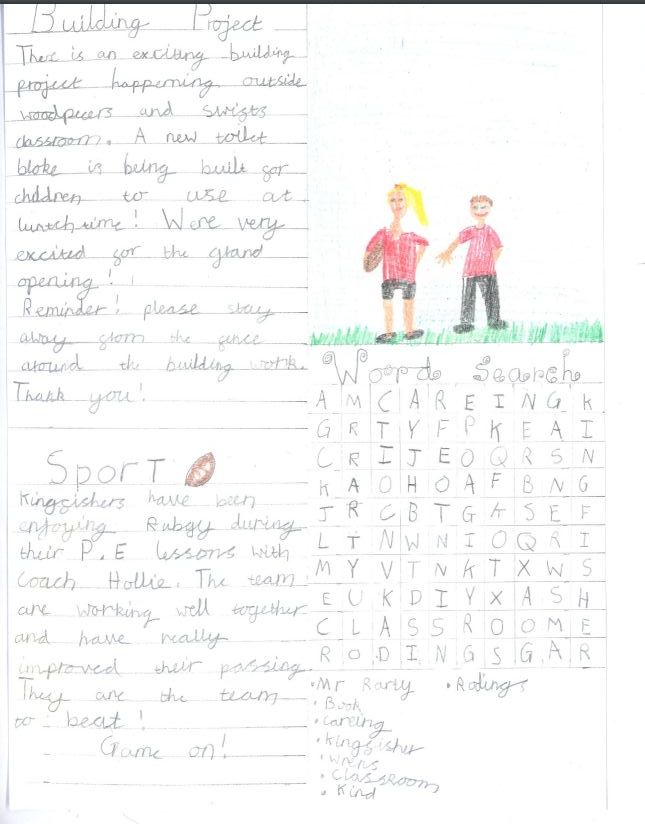 Building Project
There is an exciting building
project happening outside
woodpecers and swifts
classroom. A new toilet
bloke is being built for
children to use at
lunchtime! Were very
excited for the grand
opening!
Reminder! please stay
away from the fence
around the building work.
Thank you!
Sport
Kingfishers have been
enjoying Rubgy during
their P.E lessons with
Coach Hollie. The team
are working well together
and have really
improved their passing.
They are the team
to beat!
Game on!
Word Search
A M C A R E I N G K
G R T Y F P K E A I
C R I J E O Q R S N
K A O H O A F B N G
J R C B T G A S E F
L T N W N I O Q R I
M Y V T N K T X W S
E U K D I Y X A S H
C L A S S R O O M E
R O D I N G S G A R
• Mr Rarty • Rodings
• Book
• Careing
• Kingfisher
• Wrens
• Classroom
• Kind